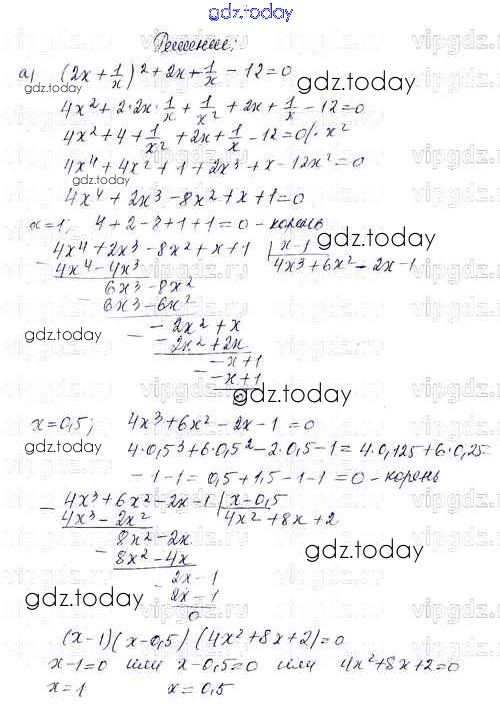 gdz.today
Решение:
а) (2x + 1/x)² + 2x + 1/x - 12 = 0
gdz.today
gdz.today
4x² + 2·2x·1/x + 1/x² + 2x + 1/x - 12 = 0
4x² + 4 + 1/x² + 2x + 1/x - 12 = 0 /· x²
4x⁴ + 4x² + 1 + 2x³ + x - 12x² = 0
gdz.today
4x⁴ + 2x³ - 8x² + x + 1 = 0
x = 1; 4 + 2 - 8 + 1 + 1 = 0 - корень
gdz.today
4x⁴ + 2x³ - 8x² + x + 1 | x - 1
- 4x⁴ - 4x³ 4x³ + 6x² - 2x - 1
6x³ - 8x²
- 6x³ - 6x²
gdz.today
- 2x² + x
- - 2x² + 2x
- x + 1
- - x + 1
0
gdz.today
x = 0,5; 4x³ + 6x² - 2x - 1 = 0
gdz.today
4·0,5³ + 6·0,5² - 2·0,5 - 1 = 4·0,125 + 6·0,25
- 1 - 1 = 0,5 + 1,5 - 1 - 1 = 0 - корень
gdz.today
4x³ + 6x² - 2x - 1 | x - 0,5
- 4x³ - 2x² 4x² + 8x + 2
8x² - 2x
- 8x² - 4x
2x - 1
- 2x - 1
0
gdz.today
gdz.today
(x - 1)(x - 0,5)(4x² + 8x + 2) = 0
x - 1 = 0 или x - 0,5 = 0 или 4x² + 8x + 2 = 0
x = 1 x = 0,5